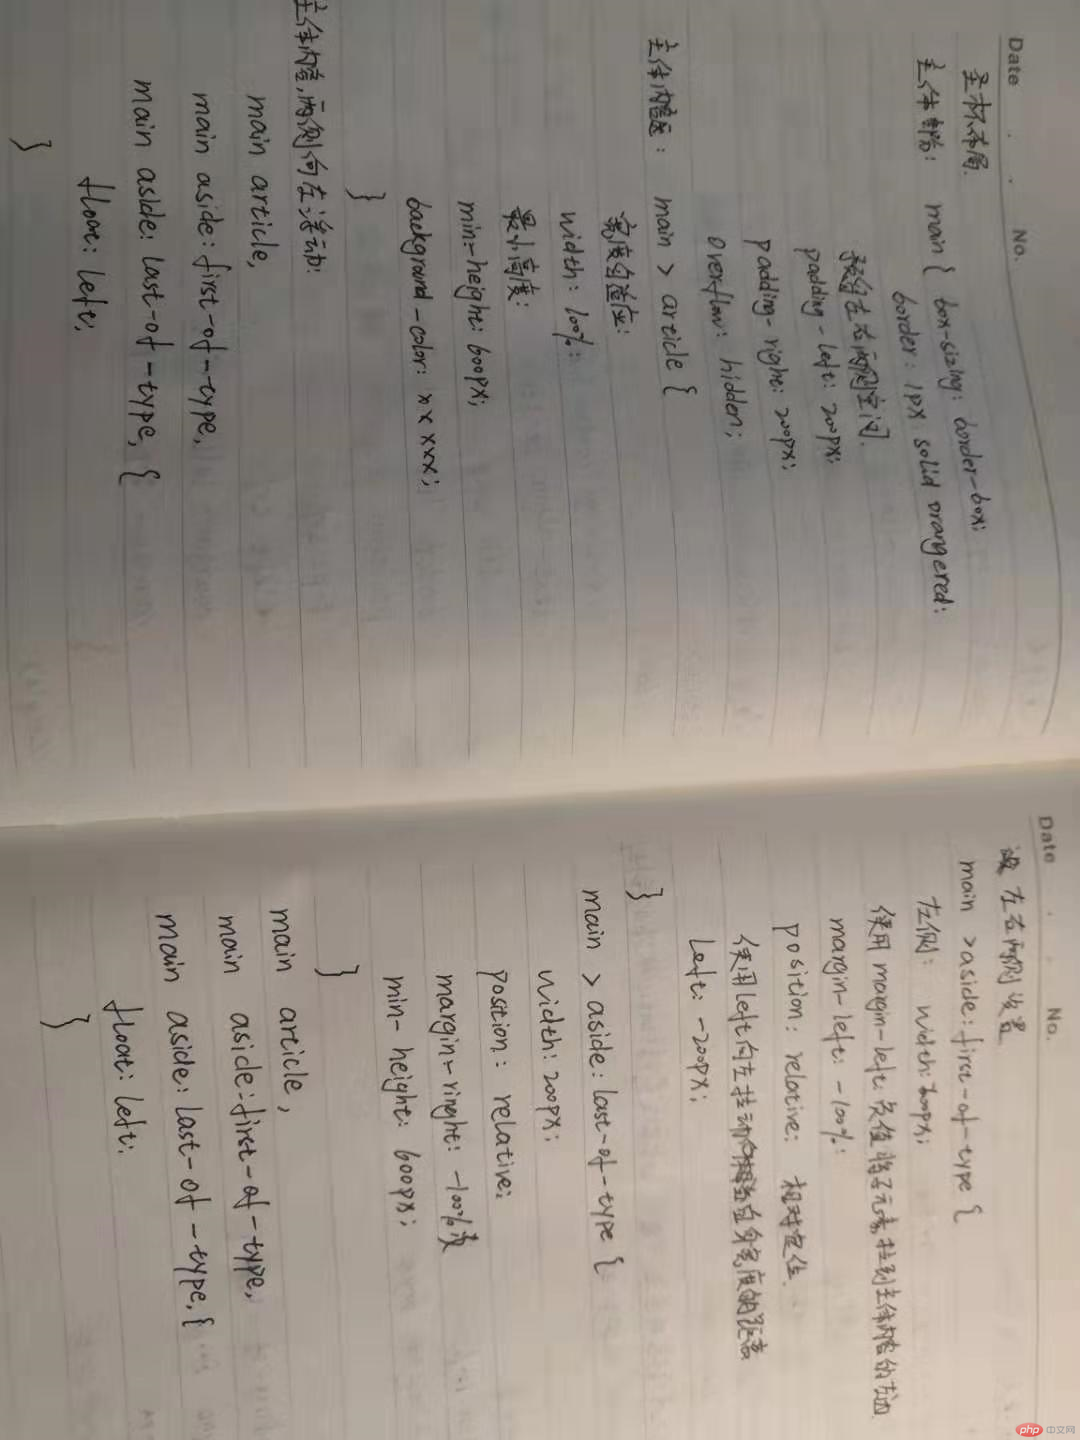 Date . . No.
圣杯布局.
主体部分: main { box-sizing: border-box;
border: 1px solid orangered:
预留左右两侧空间.
padding-left: 200px;
padding-right: 200px;
overflow: hidden;
主体内容区: main > article {
宽度自适应:
width: 100%:
最小高度:
min-height: 600px;
background-color: xxxxx;
}
主体内容,两侧向左浮动:
main article,
main aside:first-of-type,
main aside:last-of-type, {
float: left;
}
Date . . No.
左右两侧设置
main >aside:first-of-type {
左侧: width:200px;
使用margin-left:负值将子元素拉到主体内容的左边
margin-left: -100%:
position: relative: 相对定位.
使用left向左拉动自身宽度的距离
left: -200px;
}
main > aside:last-of-type {
width:200px;
position: relative;
margin-ringht: -100%
min-height: 600px;
}
main article,
main aside:first-of-type,
main aside:last-of-type, {
float: left:
}
php 中文网